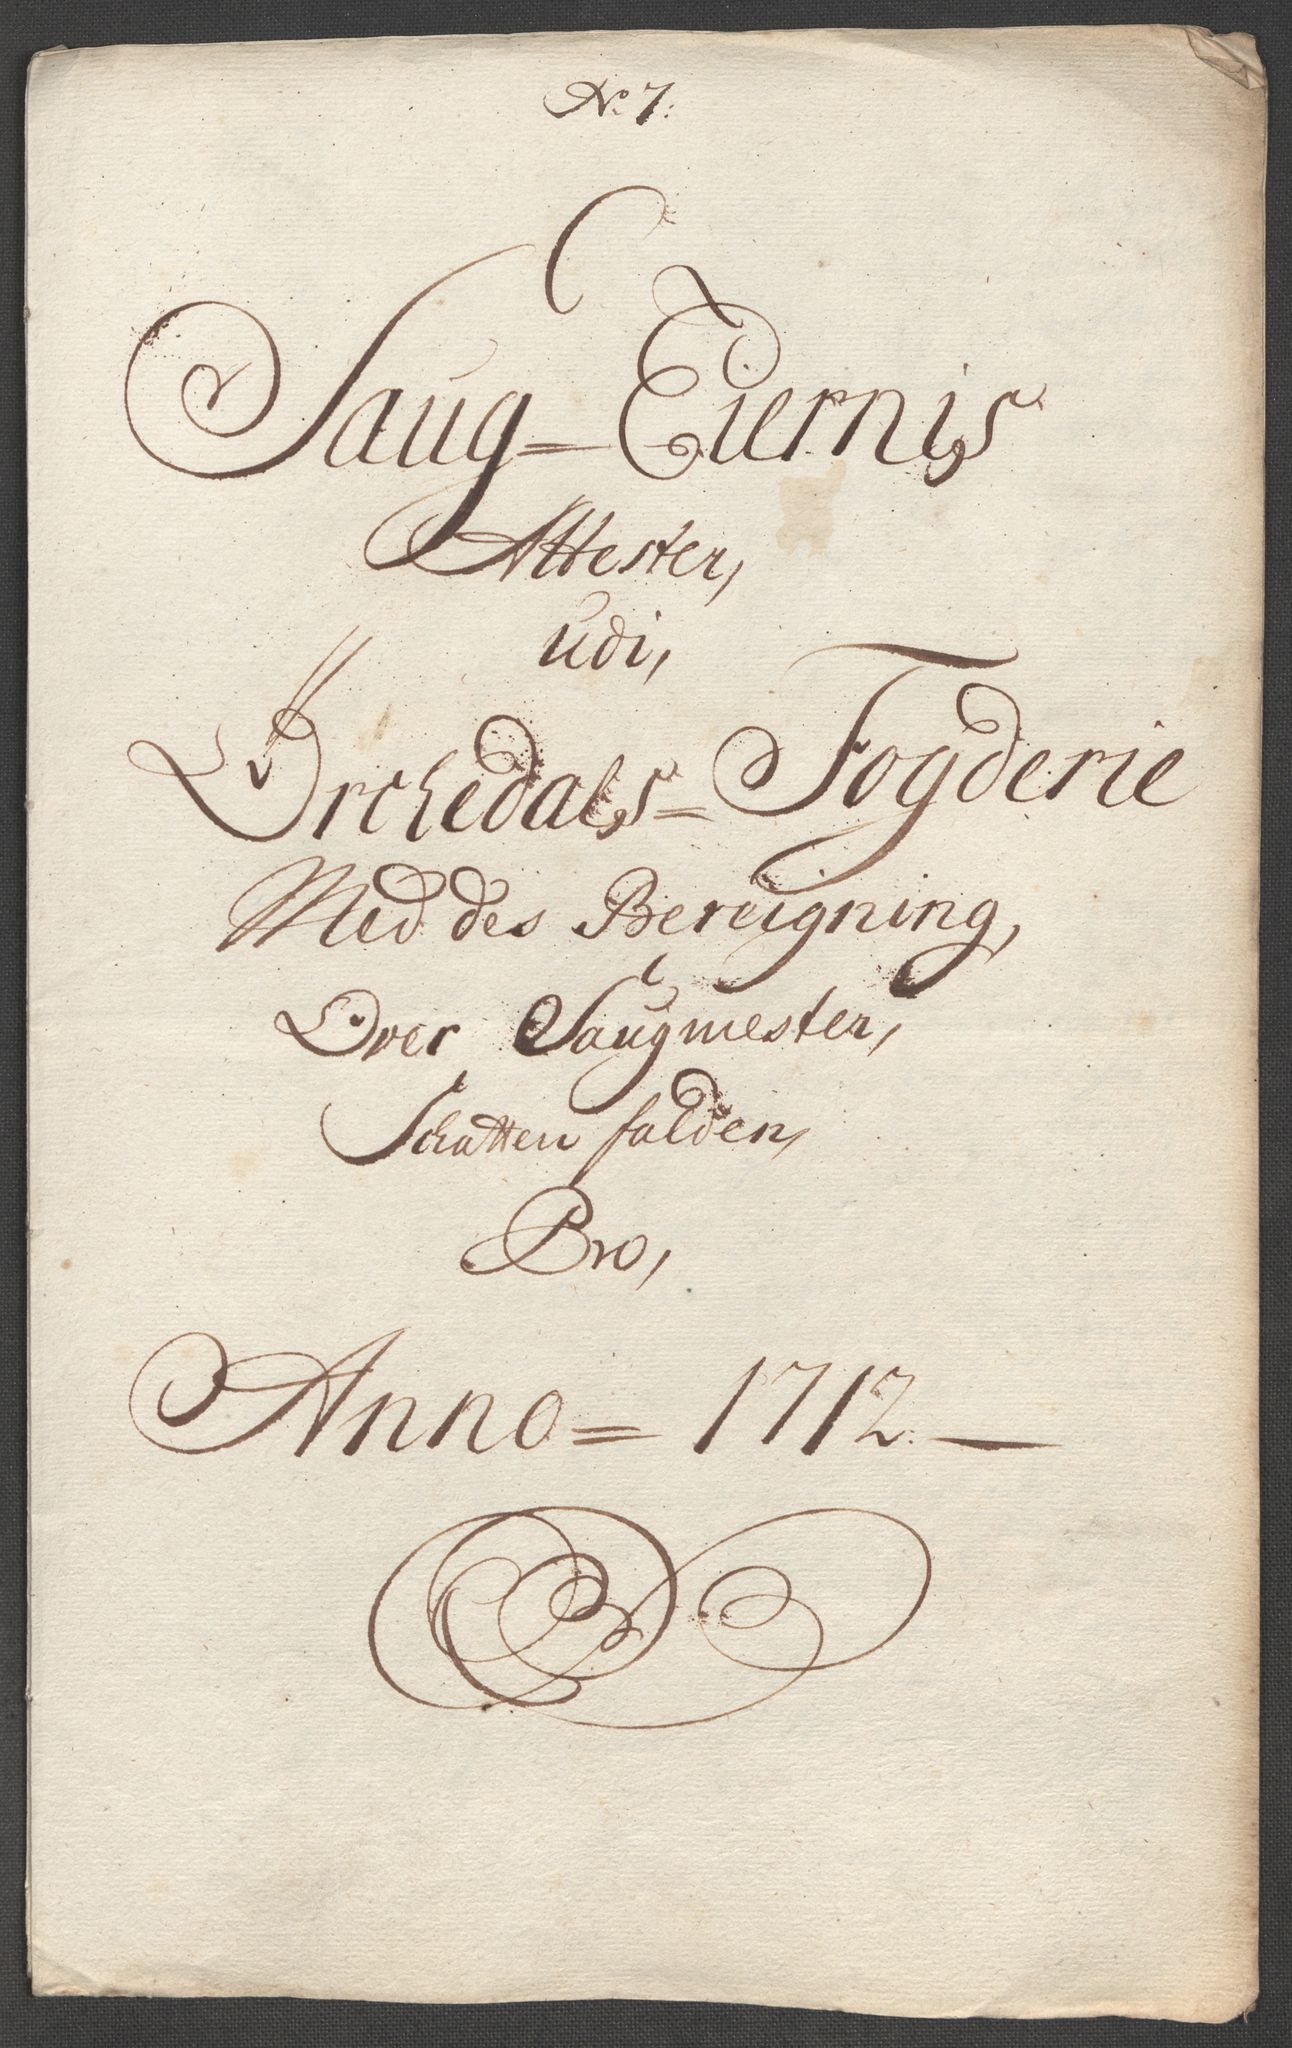 No 7:
Saug = Eiernis
Attester,
udi,
Orchedals = Fogderie
Med des Bereigning,
Over Saugmester,
Schatten falden,
Pro,
Anno = 1712. —